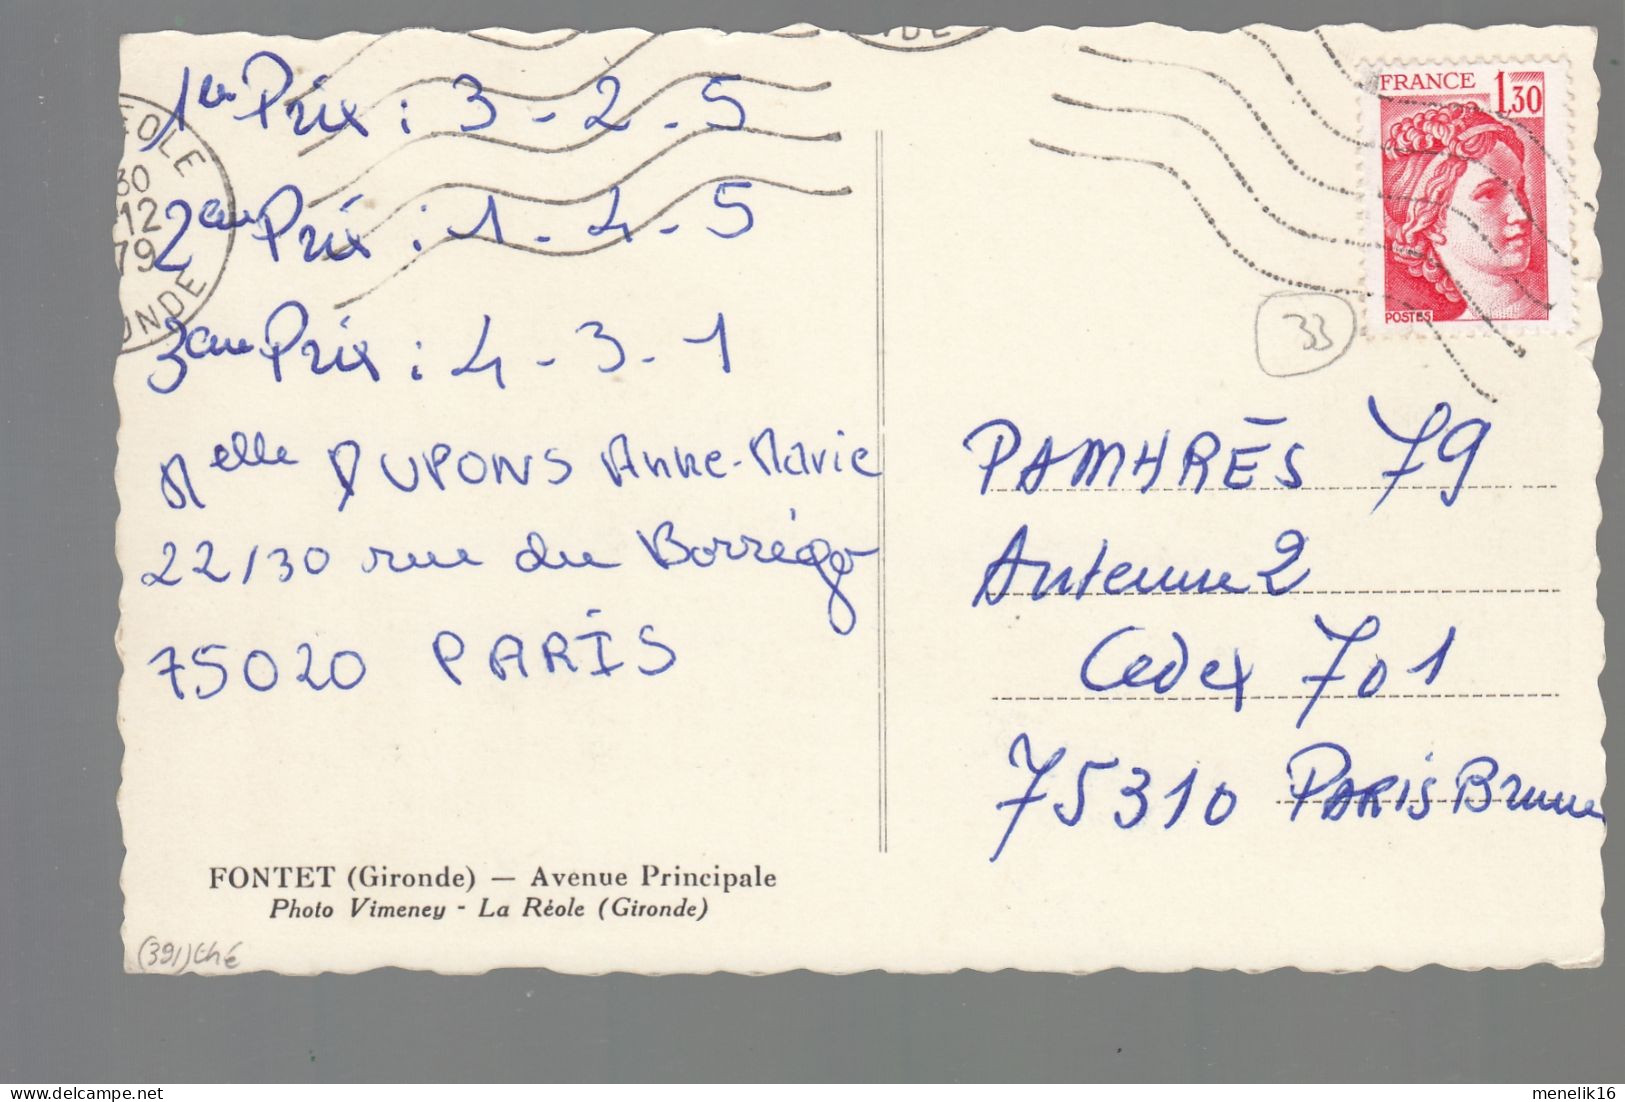 1er Prix : 3 - 2 - 5
2eme Prix : 1 - 4 - 5
3eme Prix : 4 - 3 - 1
Melle DUPONS Anne-Marie
22/30 rue du Borrégo
75020 PARIS
FONTET (Gironde) — Avenue Principale
Photo Vimeney - La Réole (Gironde)
(391) thé
ÉOLE
30
12
79
ONDE
DE
FRANCE 1,30
POSTES
33
PAMHRÈS 79
Antenne 2
Cedex 701
75310 PARIS Brune
menelik16